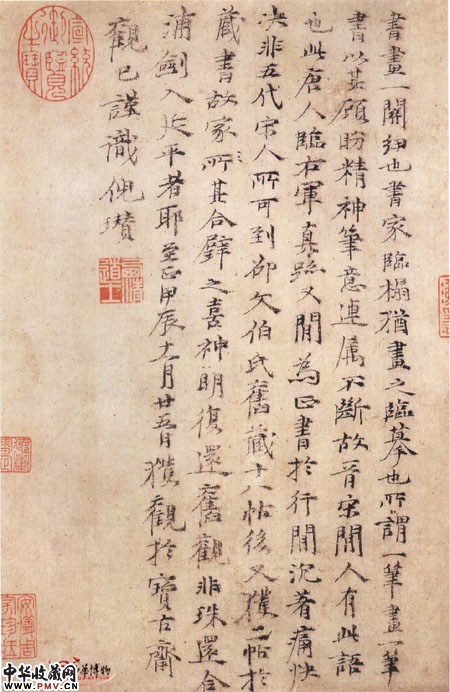 書畫一關紐也書家臨榻猶畫之臨摹也所謂一筆畫一筆
書以其顧盼精神筆意連属不斷故晋宋間人有此語
也此唐人臨右軍真跡又間為正書於行間沉着痛快
决非五代宋人所可到卻欠伯氏舊藏十八帖後又獲二帖於
藏書故家所其合璧之喜神明復還舊觀非珠還合
浦劍入延平者耶至正甲辰十一月廿五日獲觀於寶古齋
觀已謹識倪瓚
宣統御覽之寶
安儀周家珍藏
博物
中华收藏网
WWW.PMV.CN